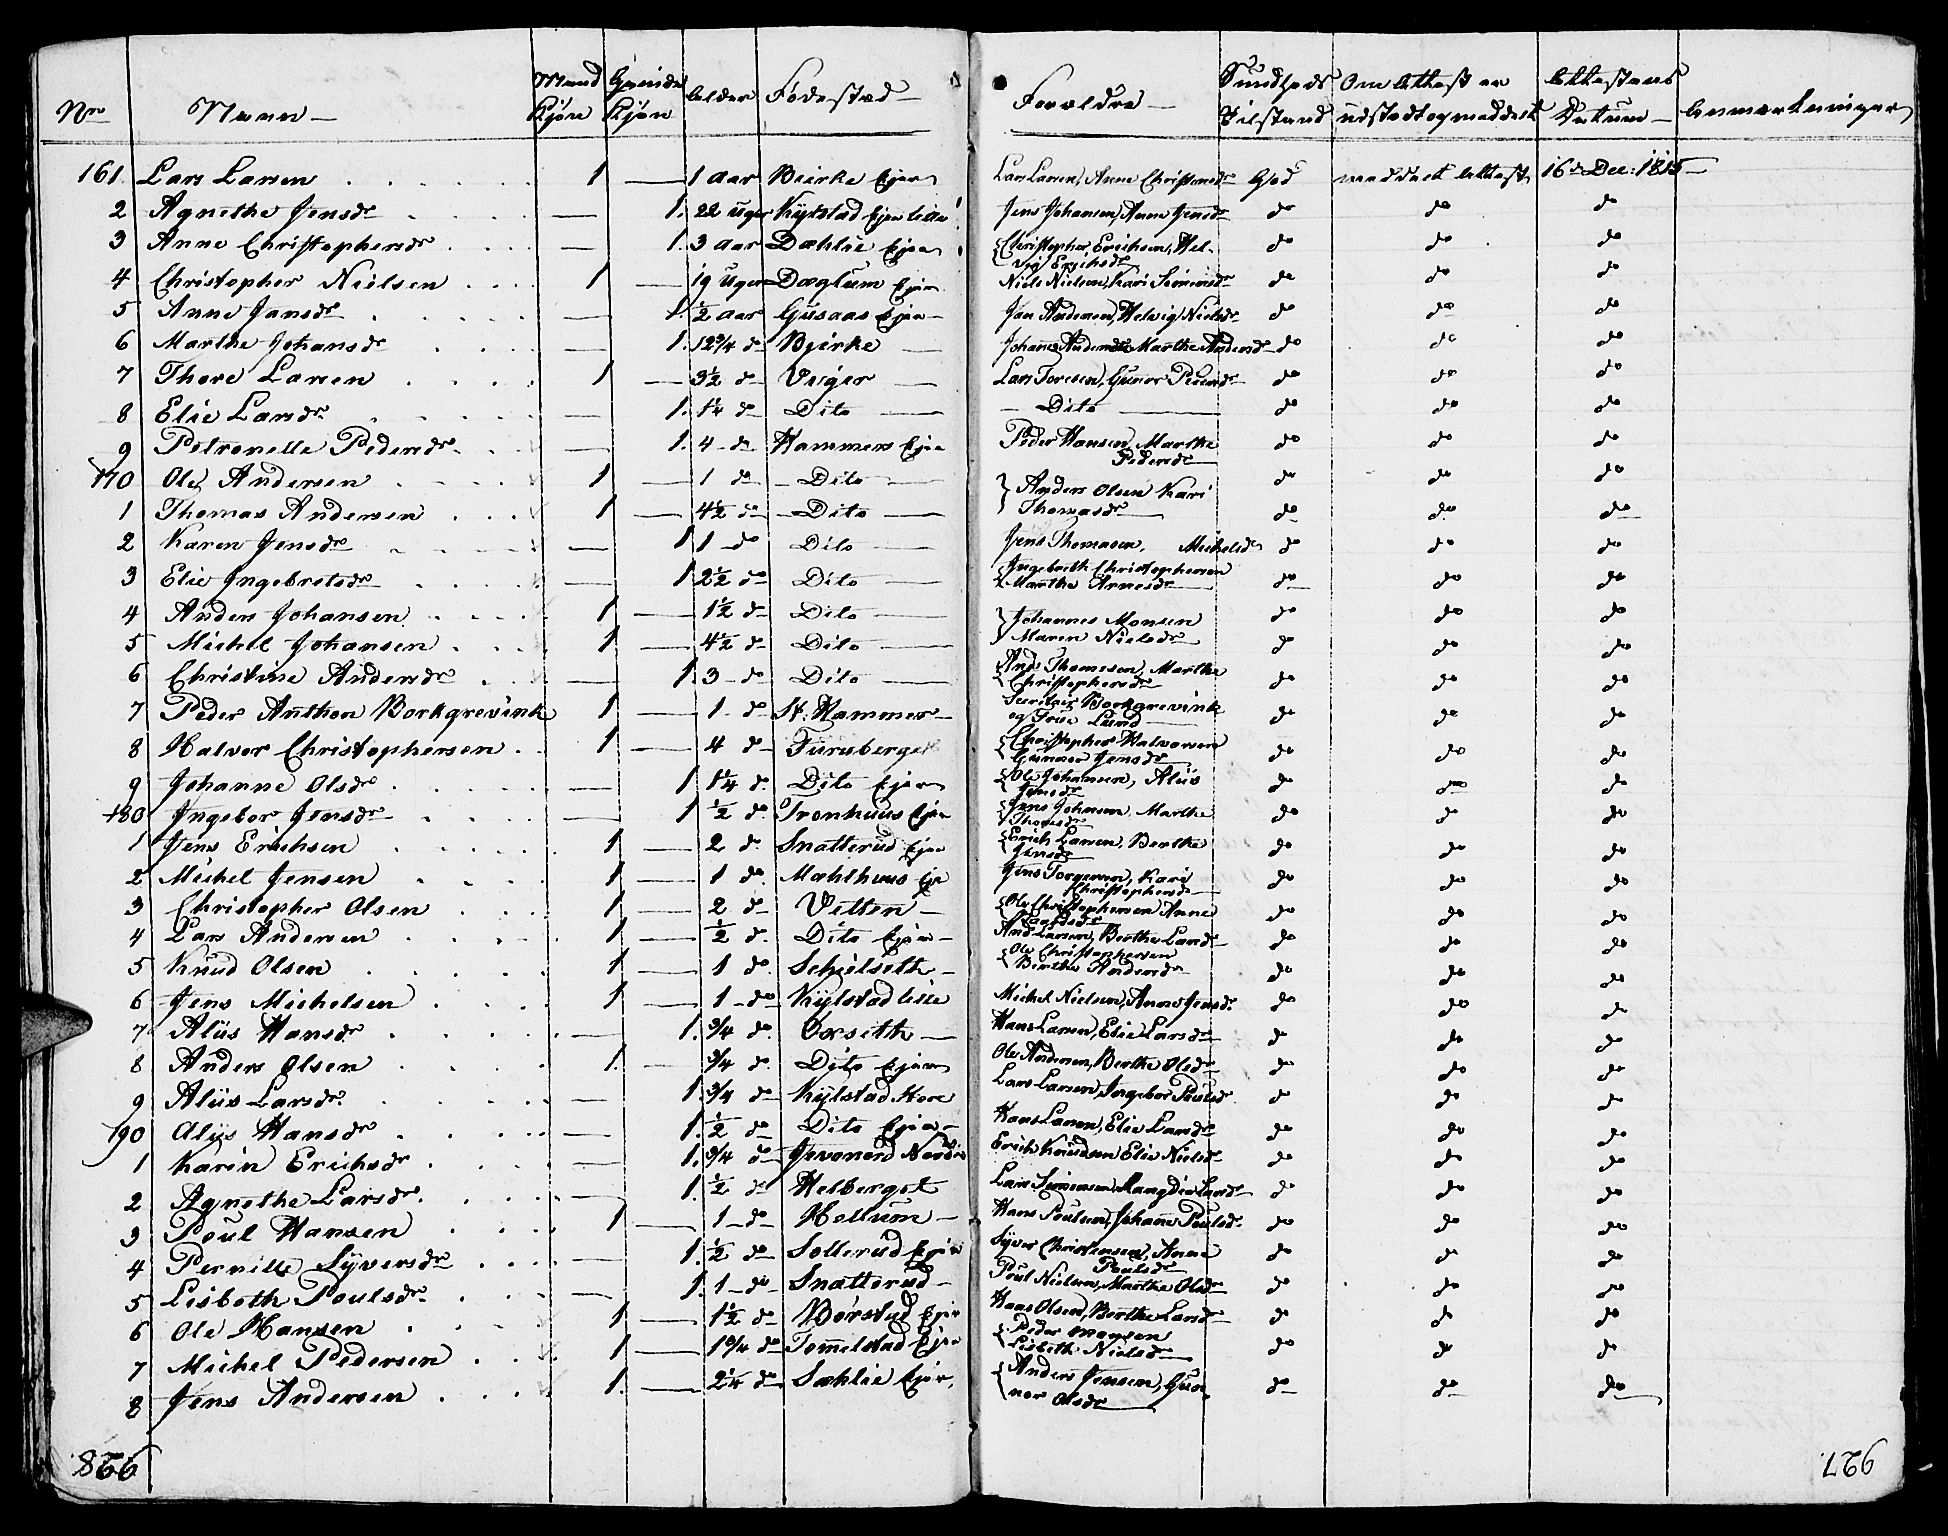 Nr Navn Mand Kjøn Qvinde Kjøn Alder Fødested Forældre Sundheds Tilstand Om Attest er udstedt og meddelt Attestens Datum Anmærkninger
161 Lars Larsen 1 — 1 aar Beirke Ejer Lars Larsen, Anne Christensdr God meddelt Attest 16de Dec: 1815
2 Agnethe Jensdr — 1. 22 Uger Kylstad Ejer lille Jens Johansen, Anne Jensdr do do do
3 Anne Christophersdr — 1. 3 aar Dæhlie Ejer Christopher Erichsen, Helvig Erichsdr do do do
4 Christopher Nielsen 1 — 19 Uger Døglum Ejer Niels Nielsen, Kari Simensdr do do do
5 Anne Jansdr — 1. ½ aar Gusaas Ejer Jan Andersen, Helvig Nielsdr do do do
6 Marthe Johansdr — 1. 12¾ do Bjerke Johannes Andersen Marthe Andersdr do do do
7 Thore Larsen 1 — 3½ do Veiger Lars Toresen, Guner Pedersdr do do do
8 Elie Larsdr — 1. 1¼ do Dito Dito do do do
9 Petronelle Pedersdr — 1. 4 do Hammers Ejer Peder Hansen, Marthe Pedersdr do do do
170 Ole Andersen 1 — 1 do Dito Anders Olsen Kari do do do
1 Thomas Andersen 1 — 4½ do Dito Thomasdr do do do
2 Karen Jensdr — 1 1 do Dito Jens Thomasen, Michelsdr do do do
3 Elie Ingebretsdr — 1. 2½ do Dito Ingebreth Christophersen Marthe Arnesdr do do do
4 Anders Johansen 1 — 1½ do Dito Johannes Monsen do do do
5 Michel Johansen 1 — 4½ do Dito Maren Nielsdr do do do
6 Christine Andersdr — 1. 3 do Dito Ands Thomesen, Marthe Christophersdr do do do
7 Peder Anthon Borkgrevink 1 — 1 do St: Hammer Borkgrevink og Frue Lund do do do
8 Halvor Christophersen 1 — 4 do Furuberget Christopher Halvorsen Gunner Jensdr do do do
9 Johanne Olsdr — 1 1¼ do Dito Ejer Ole Johansen, Aliis Jensdr do do do
180 Ingebor Jensdr — 1 ½ do Tronhuus Ejer Jens Johnsen Marthe Thoresdr do do do
1 Jens Erichsen 1 — 2 do Snatterud Ejer Erich Larsen, Berthe Jensdr do do do
2 Michel Jensen 1 — 1 do Mæhlhuus Ejer Jens Torgersen, Kari Christophersdr do do do
3 Christopher Olsen 1 — 2 do Vetten Ole Christophersen Anne do do do
4 Lars Andersen 1 — ½ do Dito Ejer And Larsen, Berthe Larsdr do do do
5 Knud Olsen 1 — 1 do Schielseth Ole Christophersen Berthe Andersdr do do do
6 Jens Michelsen 1 — 1 do Kylstad lille Michel Nielsen, Anne Jensdr do do do
7 Aliis Hansdr — 1. ¾ do Oxseth Hans Larsen, Elie Larsdr do do do
8 Anders Olsen 1. — ¾ do Dito Ejer Ole Andersen, Berthe Olsdr do do do
9 Aliis Larsdr — 1. ¾ do Kylstad Store Lars Larsen, Ingebor Poulsdr do do do
190 Aliis Hansdr — 1. ½ do Dito Ejer Hans Larsen, Elie Larsdr do do do
1 Karin Erichsdr — 1. ¾ do Erich Knudsen Elie Nielsdr do do do
2 Agnethe Larsdr — 1. ½ do Helberget Lars Simensen Mangdie Larsdr do do do
3 Poul Hansen 1 — 1 do Hellum Hans Poulsen, Johane Poulsdr do do do
4 Pernille Syversdr — 1. ½ do Sollerud Ejer Syver Christensen, Anne Poulsdr do do do
5 Lisbeth Poulsdr — 1. 1 do Snatterud Poul Nielsen, Marthe Olsdr do do do
6 Ole Hansen 1 — 1½ do Børstad Ejer Hans Olsen, Berthe Larsdr do do do
7 Michel Pedersen 1 — 1¾ do Tommelstad Ejer Peder Mogsen Lisbeth Nielsdr do do do
8 Jens Andersen 1. — 2¼ do Sæhlie Ejer Anders Jensen, Gunnor Olsdr do do do
866
927